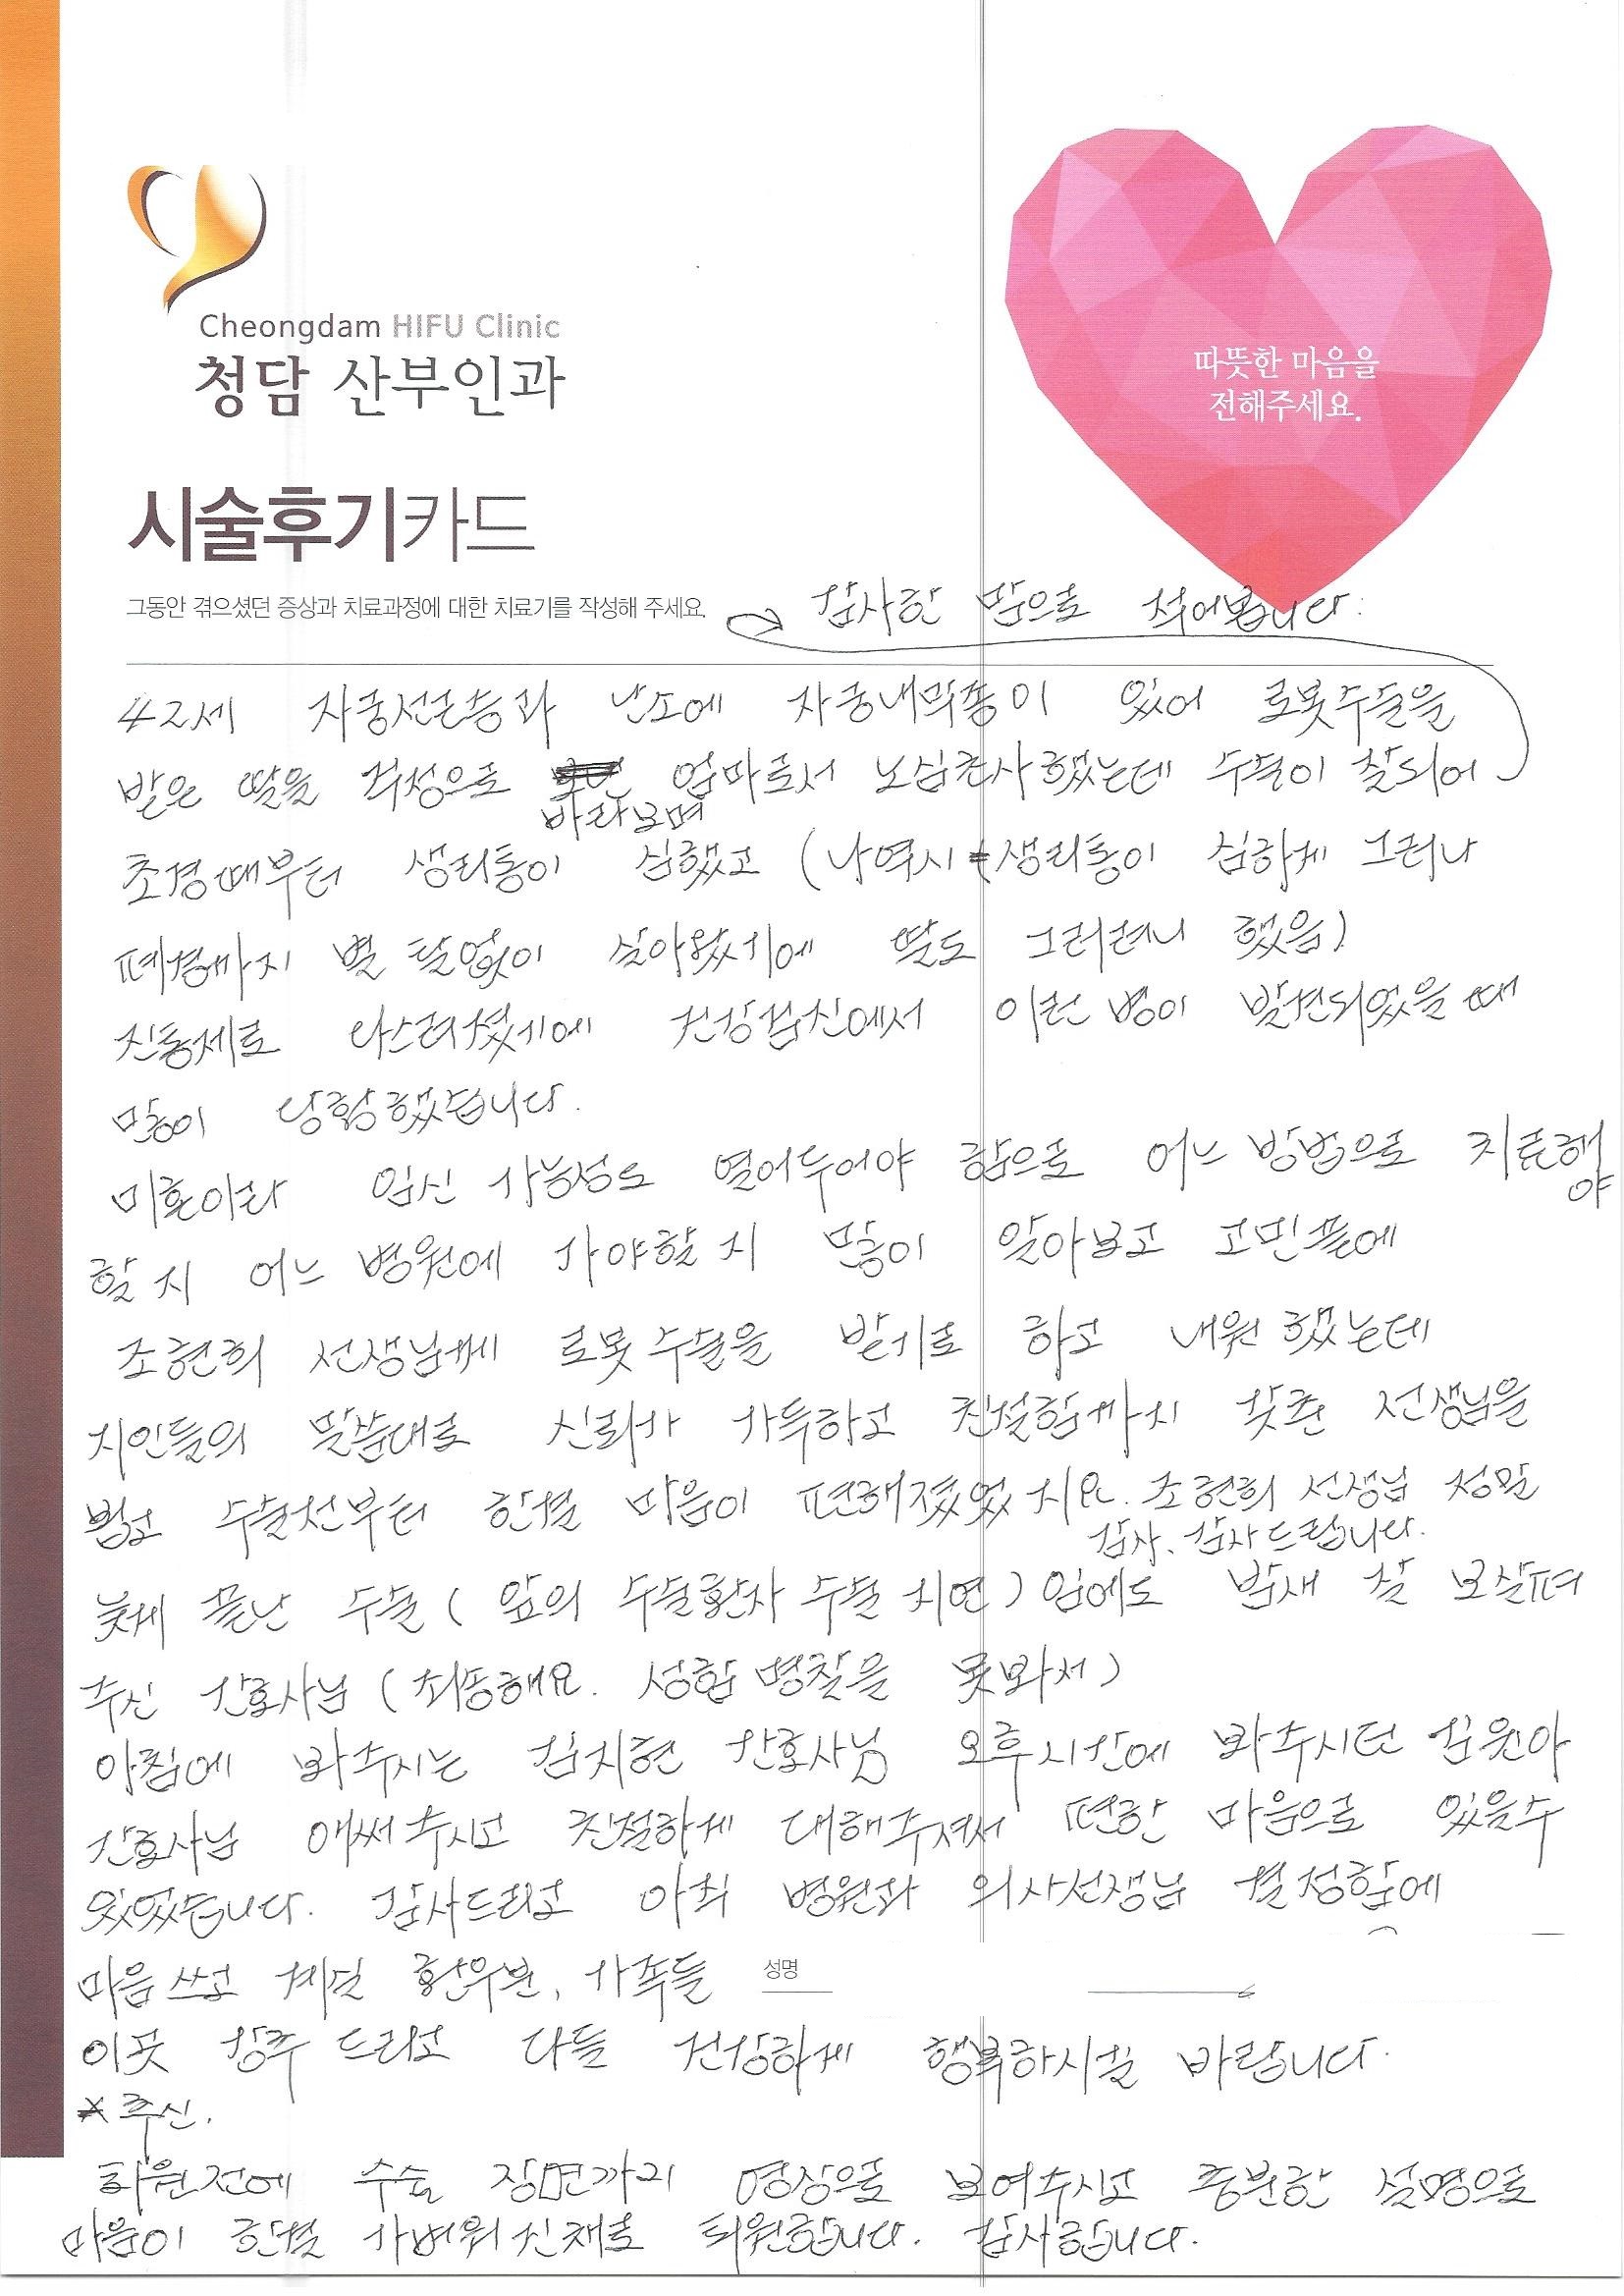 Cheongdam HIFU Clinic
청담 산부인과
따뜻한 마음을
전해주세요.
시술후기카드
그동안 겪으셨던 증상과 치료과정에 대한 치료기를 작성해 주세요.
감사한 맘으로 적어봅니다.
42세 자궁선근증과 난소에 자궁내막종이 있어 로봇수술을
받은 딸을 걱정으로 엄마로서 노심초사했는데 수술이 잘되어
바라보며
초경때부터 생리통이 심했고 (나역시 생리통이 심하게 그러나
폐경까지 별 탈없이 살아왔기에 딸도 그러려니 했음)
진통제로 다스려졌기에 건강검진에서 이런 병이 발견되었을 때
많이 당황했답니다.
미혼이라 임신 가능성도 열어두어야 함으로 어느 방법으로 치료해
야
할 지 어느 병원에 가야할 지 많이 알아보고 고민끝에
조현희 선생님께 로봇수술을 받기로 하고 내원했는데
지인들의 말씀대로 신뢰가 가득하고 친절함까지 갖춘 선생님을
뵙고 수술전부터 한결 마음이 편해졌었지요. 조현희 선생님 정말
감사, 감사드립니다.
늦게 끝난 수술 (앞의 수술환자 수술 지연) 임에도 밤새 잘 보살펴
주신 간호사님 (죄송해요. 성함 명찰을 못봐서)
아침에 봐주시는 김지현 간호사님 오후시간에 봐주시던 김원아
간호사님 애써주시고 친절하게 대해주셔서 편한 마음으로 있을수
있었습니다. 감사드리고 아직 병원과 의사선생님 결정함에
마음쓰고 계실 환우분, 가족들 성명
이곳 강추 드리고 다들 건강하게 행복하시길 바랍니다.
* 추신.
퇴원전에 수술 장면까지 영상으로 보여주시고 충분한 설명으로
마음이 한결 가벼워진채로 퇴원합니다. 감사합니다.